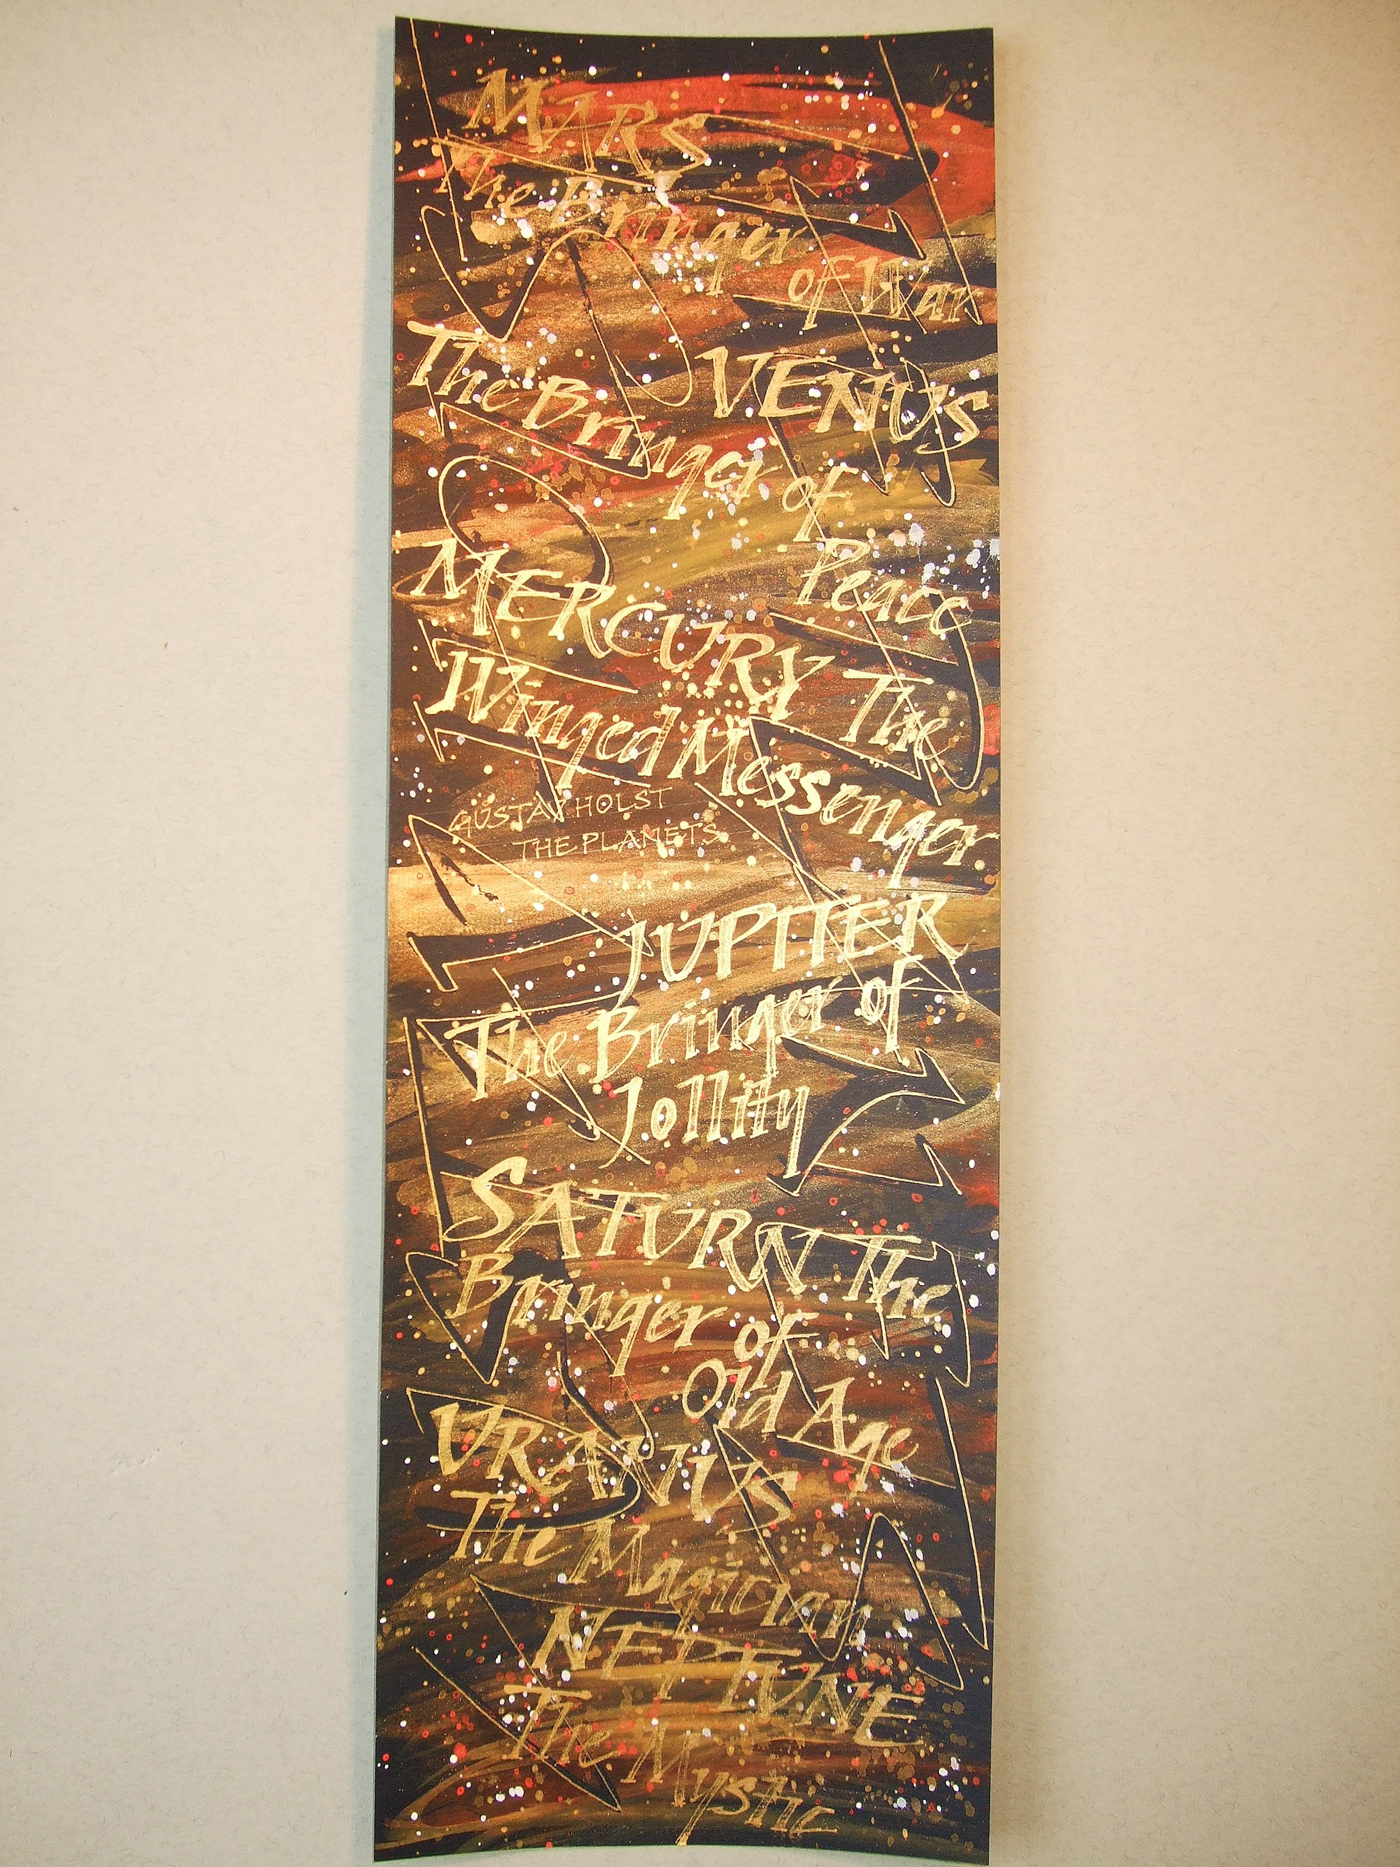 MARS
The Bringer
of War
VENUS
The Bringer of
Peace
MERCURY The
Winged Messenger
GUSTAV HOLST
THE PLANETS
JUPITER
The Bringer of
Jollity
SATURN The
Bringer of
Old Age
URANUS
The Magician
NEPTUNE
The Mystic